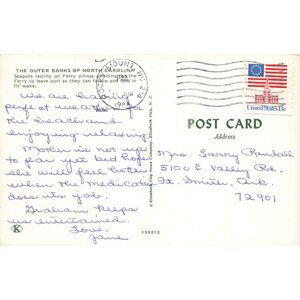 THE OUTER BANKS OF NORTH CAROLINA
Seagulls resting on Ferry pilings awaiting the
Ferry to leave port so they can follow and feed in
its' wake.
ROCKY MOUNT, NC
PM
We are having
perfect weather for
the beach and
enjoying relaxing.
Mother is not up
to par yet but hope
she will feel better
when the medication
does its job.
Graham keeps
us entertained.
Love,
Jane
United States 13c
POST CARD
Address
Mrs. Larry Randall
5100 E. Valley Rd.
Ft. Smith, Ark.
72901
K